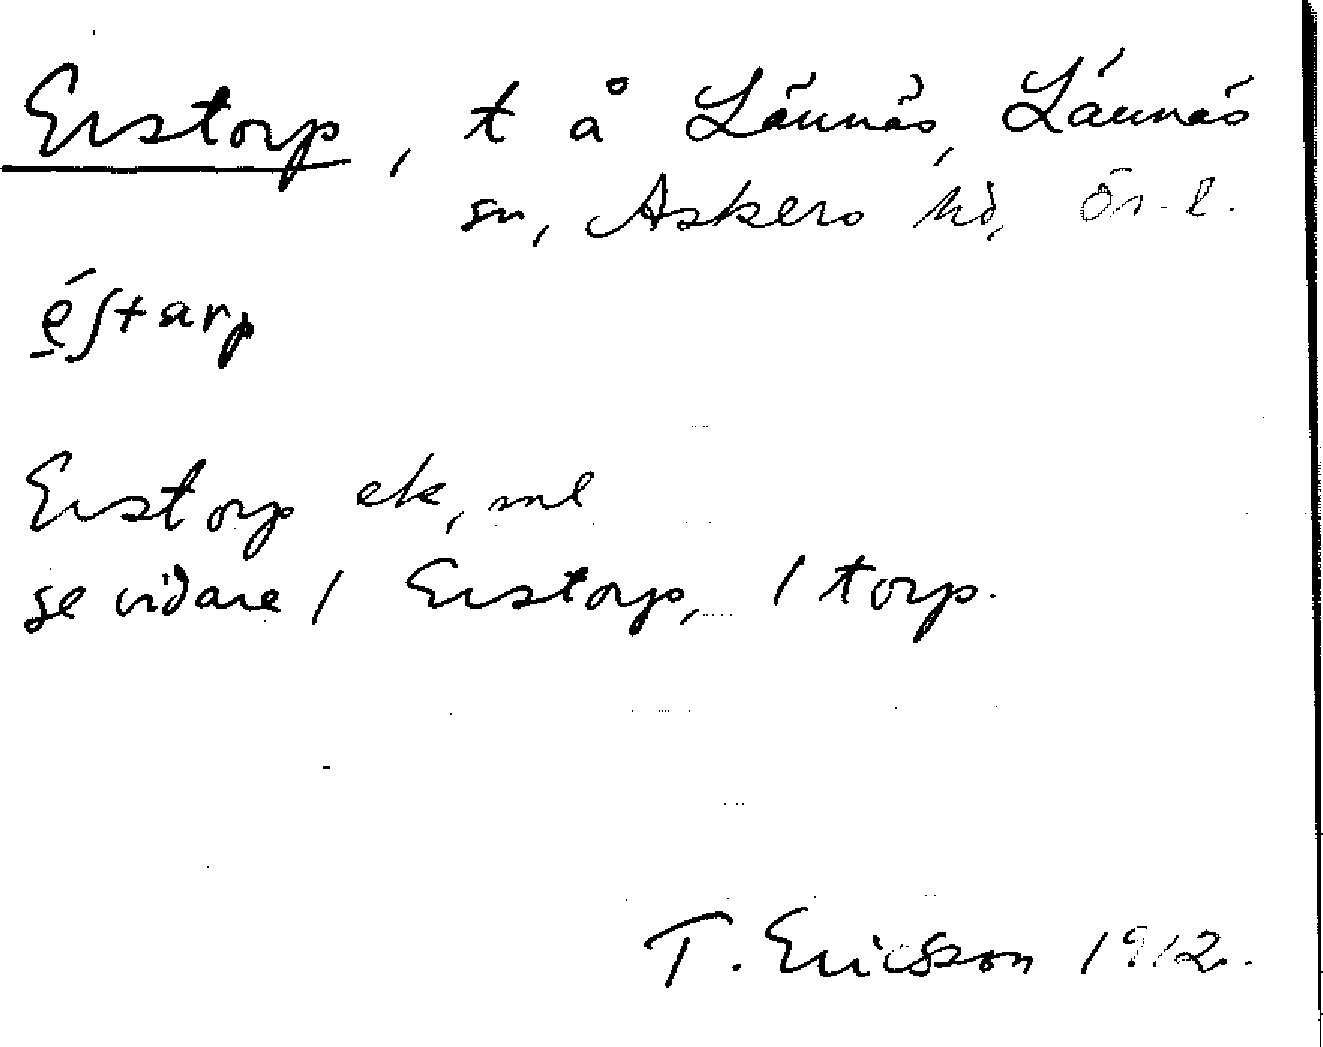 Erstorp, t å Lännäs, Lännäs
sn, Askers hd, Ör. l.
éʃtarp
Erstorp ek, ml
se vidare / Erstorp, / torp.
T. Ericsson 1912.